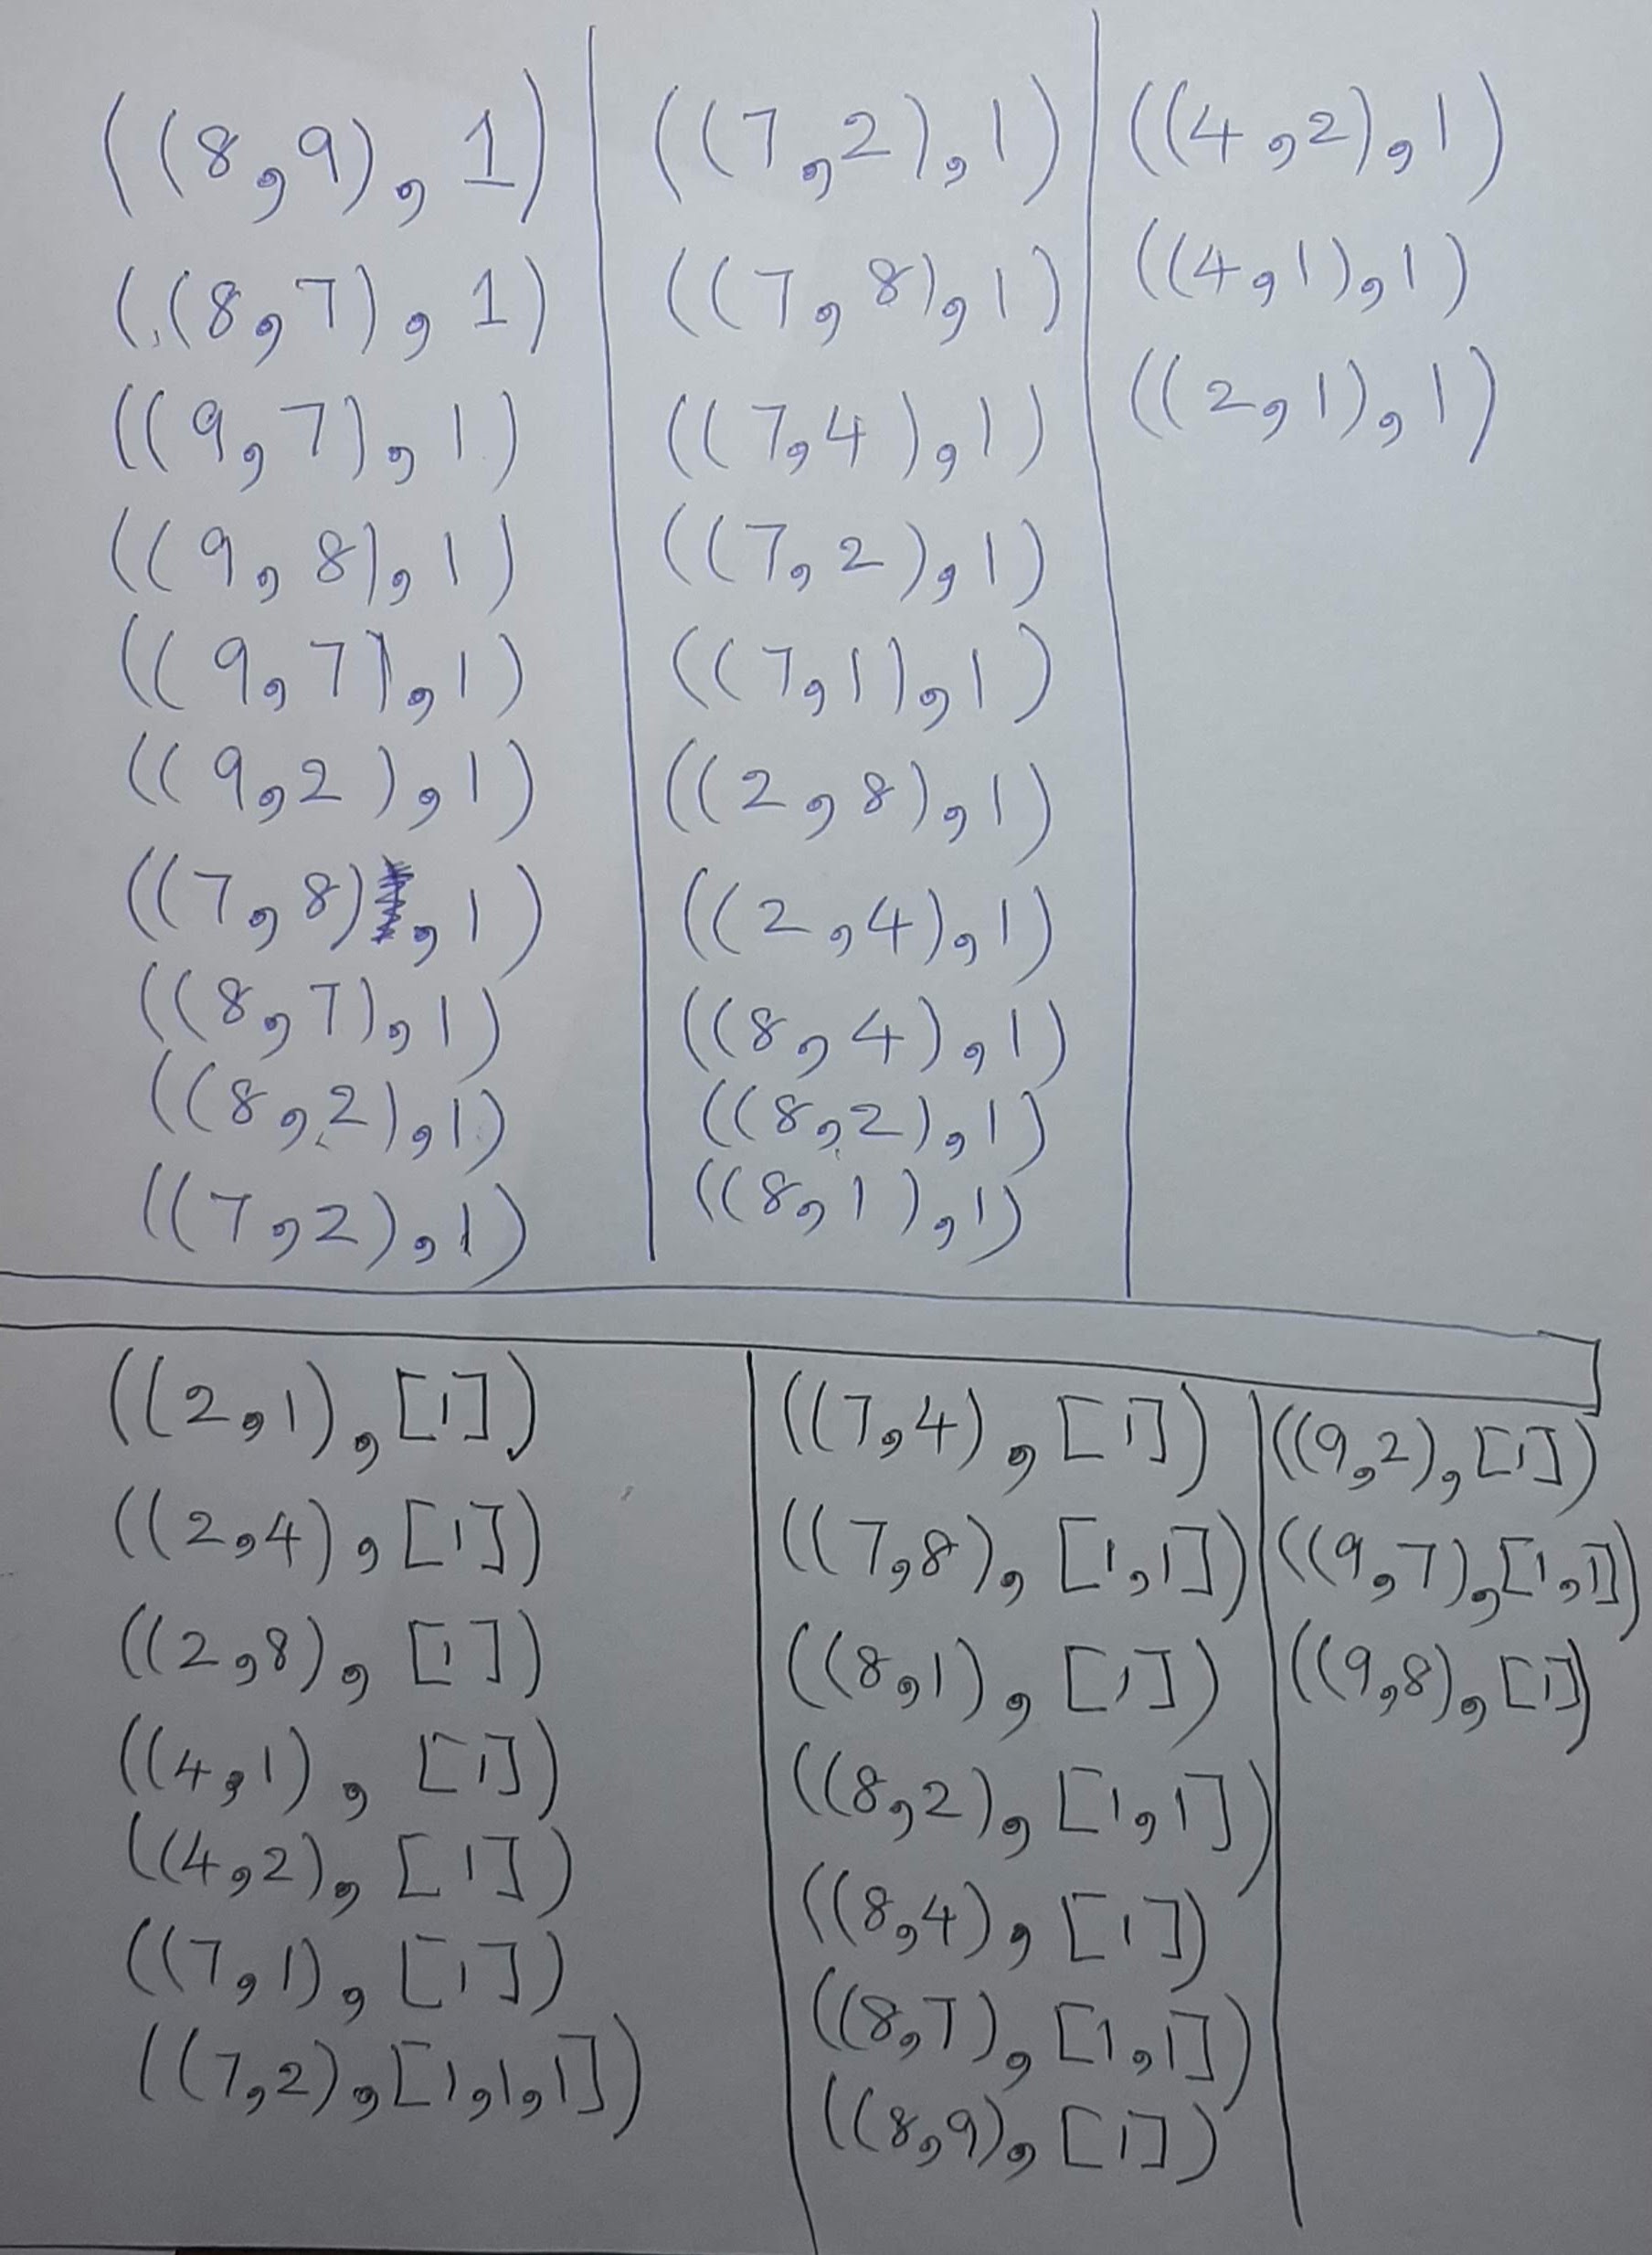 ((8,9),1)
((8,7),1)
((9,7),1)
((9,8),1)
((9,7),1)
((9,2),1)
((7,8),1)
((8,7),1)
((8,2),1)
((7,2),1)
((7,2),1)
((7,8),1)
((7,4),1)
((7,2),1)
((7,1),1)
((2,8),1)
((2,4),1)
((8,4),1)
((8,2),1)
((8,1),1)
((4,2),1)
((4,1),1)
((2,1),1)
((2,1),[1])
((2,4),[1])
((2,8),[1])
((4,1),[1])
((4,2),[1])
((7,1),[1])
((7,2),[1,1,1])
((7,4),[1])
((7,8),[1,1])
((8,1),[1])
((8,2),[1,1])
((8,4),[1])
((8,7),[1,1])
((8,9),[1])
((9,2),[1])
((9,7),[1,1])
((9,8),[1])